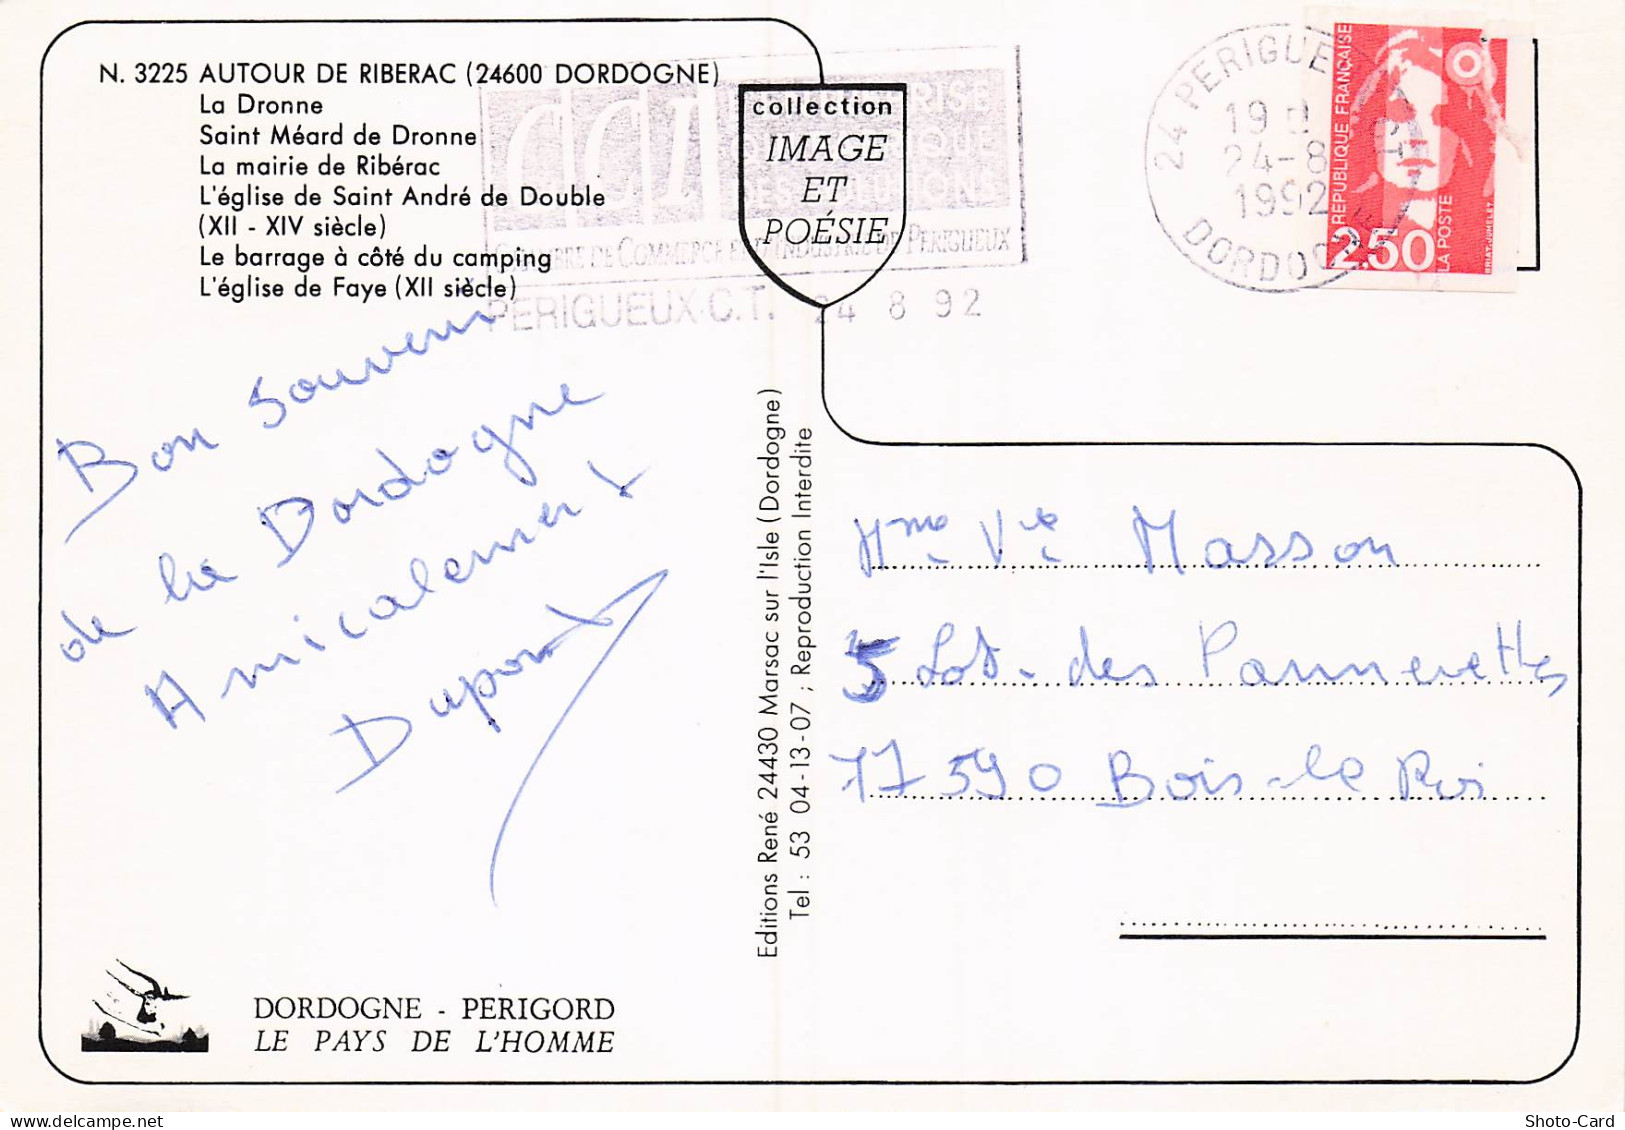 N. 3225 AUTOUR DE RIBERAC (24600 DORDOGNE)
La Dronne
Saint Méard de Dronne
La mairie de Ribérac
L'église de Saint André de Double
(XII - XIV siècle)
Le barrage à côté du camping
L'église de Faye (XII siècle)
CCI
CHAMBRE DE COMMERCE ET D'INDUSTRIE DE PERIGUEUX
PERIGUEUX.C.T. 24 8 92
collection
IMAGE
ET
POÉSIE
24 PERIGUE
19
24-8
1992
DORDOGNE
REPUBLIQUE FRANÇAISE
2.50
LA POSTE
BRIAT-JUMELET
Bon Souvenir
de la Dordogne
Amicalement
Dupont
Editions René 24430 Marsac sur l'Isle (Dordogne)
Tel : 53 04-13-07 ; Reproduction Interdite
Mme Vve Masson
5 Lot. des Pannerettes
77590 Bois-le Roi
DORDOGNE - PERIGORD
LE PAYS DE L'HOMME
Shoto-Card